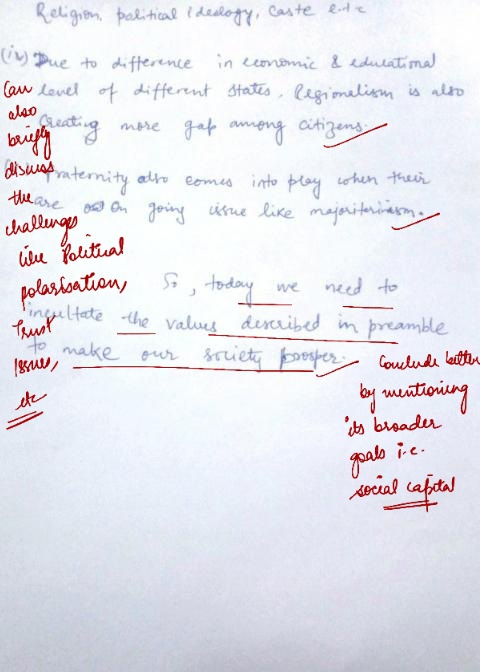 Religion, political ideology, Caste e.t.c
(iv) Due to difference in economic & educational
level of different states, Regionalism is also
Creating more gap among citizens.
fraternity also comes into play when their
are on going issue like majoritarinism.
So, today we need to
incultate the values described in preamble
to make our society prosper.
Can
also
briefly
discuss
the
challenges
like Political
polarisation,
Trust
Issues,
etc
Conclude better
by mentioning
its broader
goals i.e.
social capital